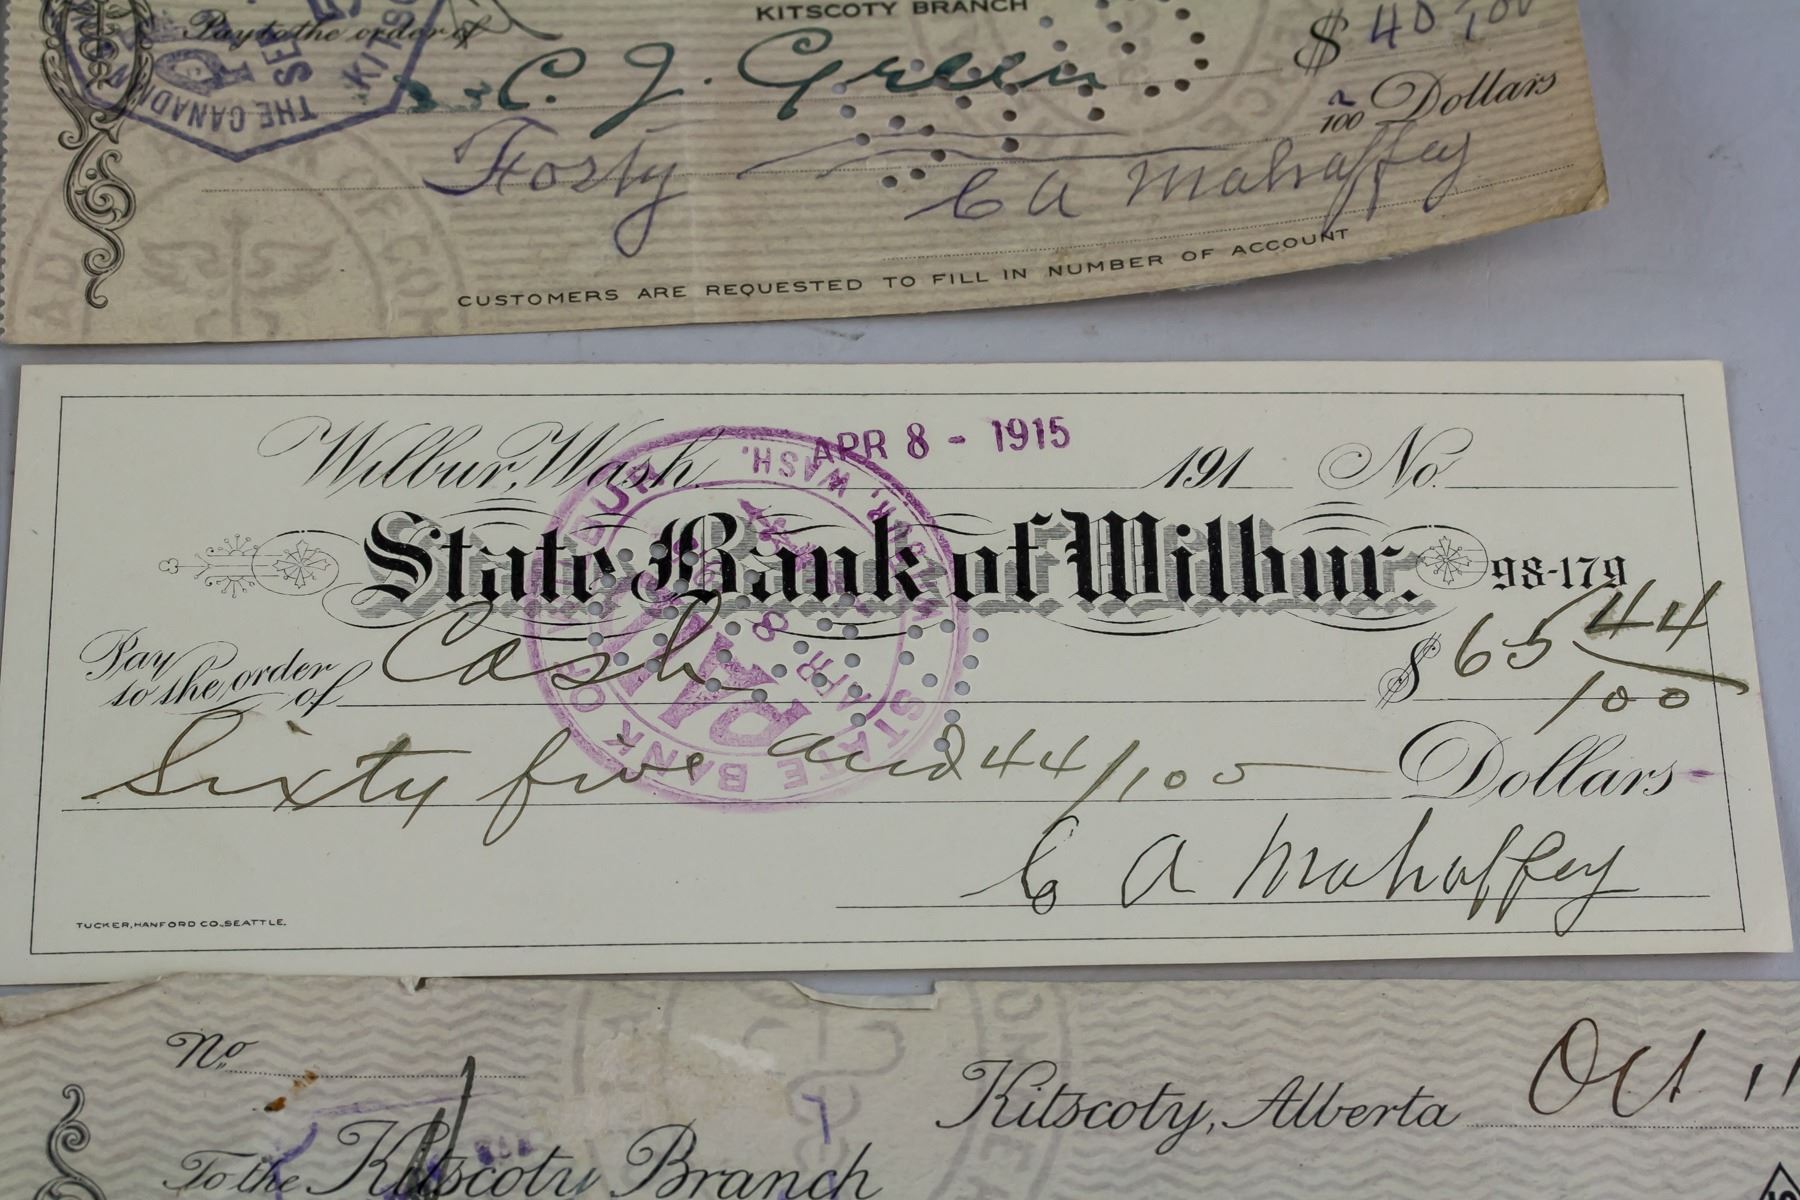 KITSCOTY BRANCH
Pay to the order of
C. J. Green $ 40
Forty /100 Dollars
C A Mahaffey
CUSTOMERS ARE REQUESTED TO FILL IN NUMBER OF ACCOUNT
THE CANADIAN
Wilbur, Wash. APR 8 - 1915 191 No.
State Bank of Wilbur. 98-179
Pay to the order of Cash $ 65 44/100
Sixty five and 44/100 Dollars
C A Mahaffey
TUCKER, HANFORD CO., SEATTLE.
STATE BANK OF WILBUR, WASH.
PAID
APR 8
No.
Kitscoty, Alberta Oct 11
To the Kitscoty Branch